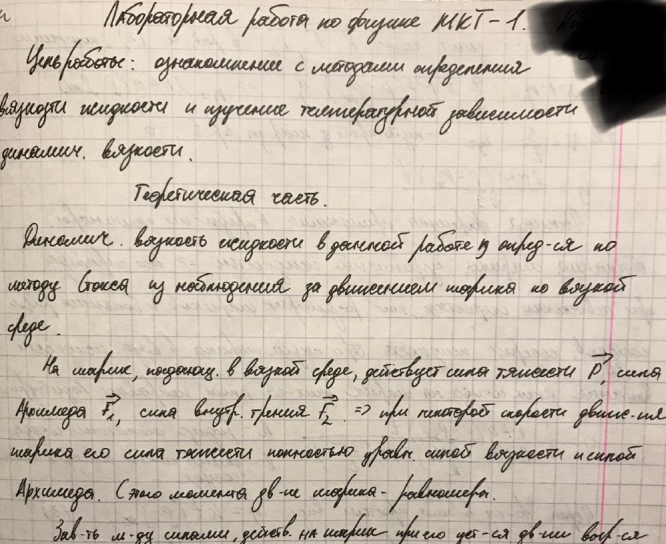 Лабораторная работа по физике МКТ-1.
Цель работы: ознакомление с методами определения
вязкости жидкости и изучение температурной зависимости
динамич. вязкости.
Теоретическая часть.
Динамич. вязкость жидкости в данной работе опред-ся по
методу Стокса из наблюдения за движением шарика по вязкой
среде.
На шарик, падающ. в вязкой среде, действует сила тяжести P, сила
Архимеда F₁, сила внутр. трения F₂. => при некоторой скорости движе-ия
шарика его сила тяжести полностью уравн. силой вязкости и силой
Архимеда. С этого момента дв-ие шарика - равномерн.
Зав-ть м-ду силами, действ. на шарик при его уст-ся дв-ии выр-ся